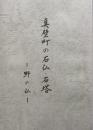 真壁町の石仏・石塔
－野の仏－